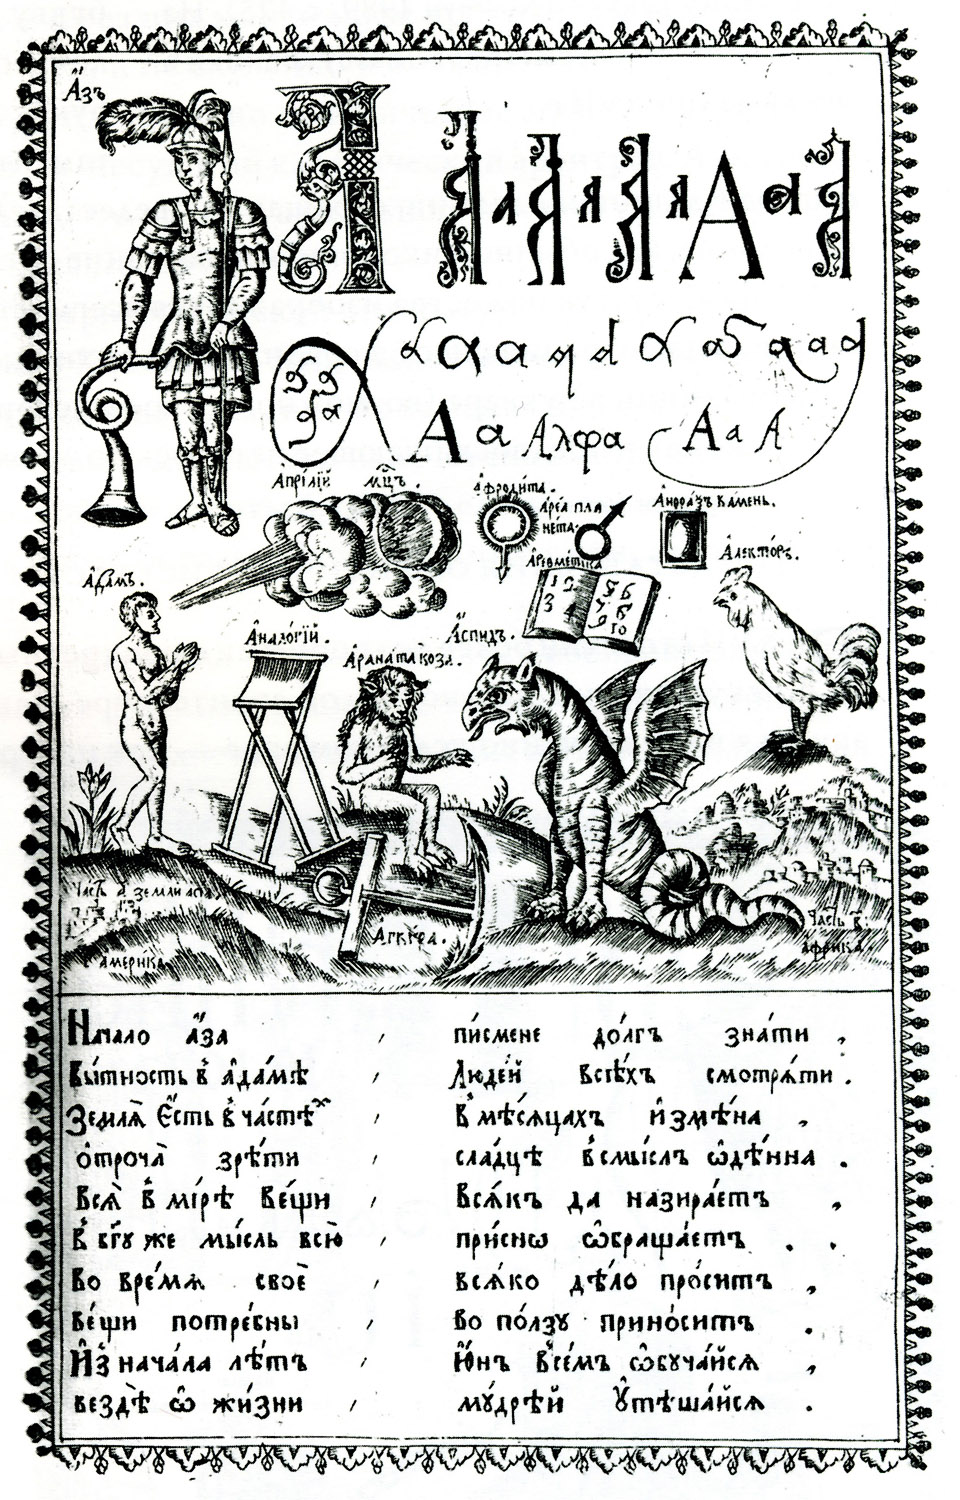 А҆́зъ
А а Алфа А а А
А҆прі́лїй мц҃ъ .
А҆фродита .
А҆ре́а пла
нета .
А҆нѳра́ѯъ ка́мень .
А҆леѯто́ръ .
А҆риѳме́тїка
1 2 3 4 5 6 7 8 9 10
А҆да́мъ .
А҆нало́гїй .
А҆́спидъ .
коза .
Часть а҃ земли асиа
америка
А҆́гкѵра .
Часть в҃
африка .
Начало а҆́за , пи́смене до́лгъ зна́ти ,
Бы́тность в̾ а҆да́мѣ , Люде́й всѣ́хъ смотрѧ́ти .
Землѧ̀ є҆́сть в̾ ча́стѣх , В̾ мѣ́сѧцахъ и҆змѣ́на ,
ѻ҆троча̀ зрѣ́ти , сла́дцѣ в̾смы́слъ ѡ҆дѣ́нна .
Всѧ̑ в̾ мі́рѣ ве́щи , Всѧ́къ да назира́етъ ,
В̾ бг҃у же мы́сль всю̀ , при́снѡ ѡ҆браща́етъ .
Во вре́мѧ своѐ , всѧ́ко дѣ́ло про́ситъ ,
Ве́щи потре́бны , во по́лзу прино́ситъ .
И҆з̾ нача́ла лѣ́тъ , Ю҆́нъ в̾се́мъ ѡ҆буча́йсѧ ,
вездѣ̀ ѡ҆ жи́зни , мꙋ́дрѣй ᲂу҆тѣша́йсѧ .